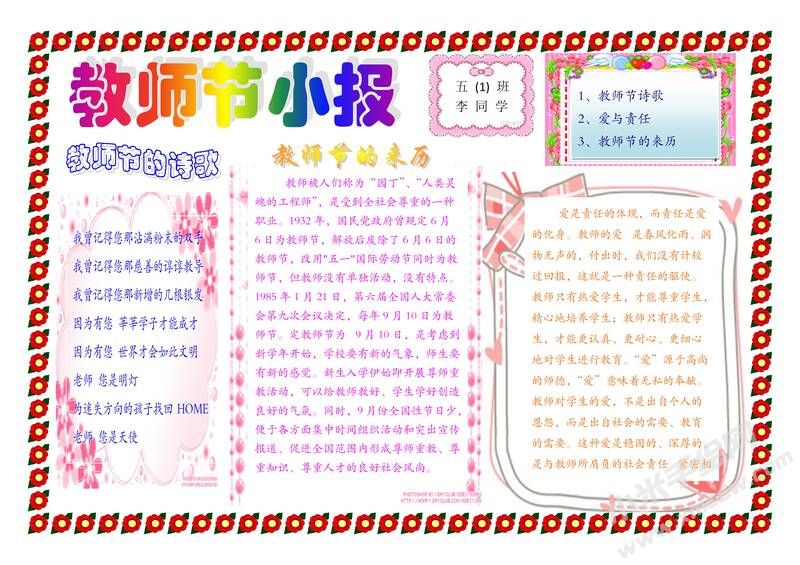 教师节小报
五 (1) 班
李 同 学
1、教师节诗歌
2、爱与责任
3、教师节的来历
教师节的诗歌
我曾记得您那沾满粉末的双手
我曾记得您那慈善的谆谆教导
我曾记得您那新增的几根银发
因为有您 莘莘学子才能成才
因为有您 世界才会如此文明
老师 您是明灯
为迷失方向的孩子找回 HOME
老师 您是天使
教师节的来历
教师被人们称为“园丁”、“人类灵
魂的工程师”，是受到全社会尊重的一种
职业。1932 年，国民党政府曾规定 6 月
6 日为教师节，解放后废除了 6 月 6 日的
教师节，改用"五一"国际劳动节同时为教
师节，但教师没有单独活动，没有特点。
1985 年 1 月 21 日，第六届全国人大常委
会第九次会议决定，每年 9 月 10 日为教
师节。定教师节为 9 月 10 日，是考虑到
新学年开始，学校要有新的气象，师生要
有新的感觉。新生入学伊始即开展尊师重
教活动，可以给教师教好、学生学好创造
良好的气氛。同时，9 月份全国性节日少，
便于各方面集中时间组织活动和突出宣传
报道、促进全国范围内形成尊师重教、尊
重知识、尊重人才的良好社会风尚。
爱是责任的体现，而责任是爱
的化身。教师的爱 是春风化雨、润
物无声的，付出时，我们没有计较
过回报，这就是一种责任的驱使。
教师只有热爱学生，才能尊重学生，
精心地培养学生；教师只有热爱学
生，才能更认真、更耐心、更细心
地对学生进行教育。“爱”源于高尚
的师德，“爱”意味着无私的奉献。
教师对学生的爱，不是出自个人的
恩怨，而是出自社会的需要、教育
的需要。这种爱是稳固的、深厚的，
是与教师所肩负的社会责任 紧密相